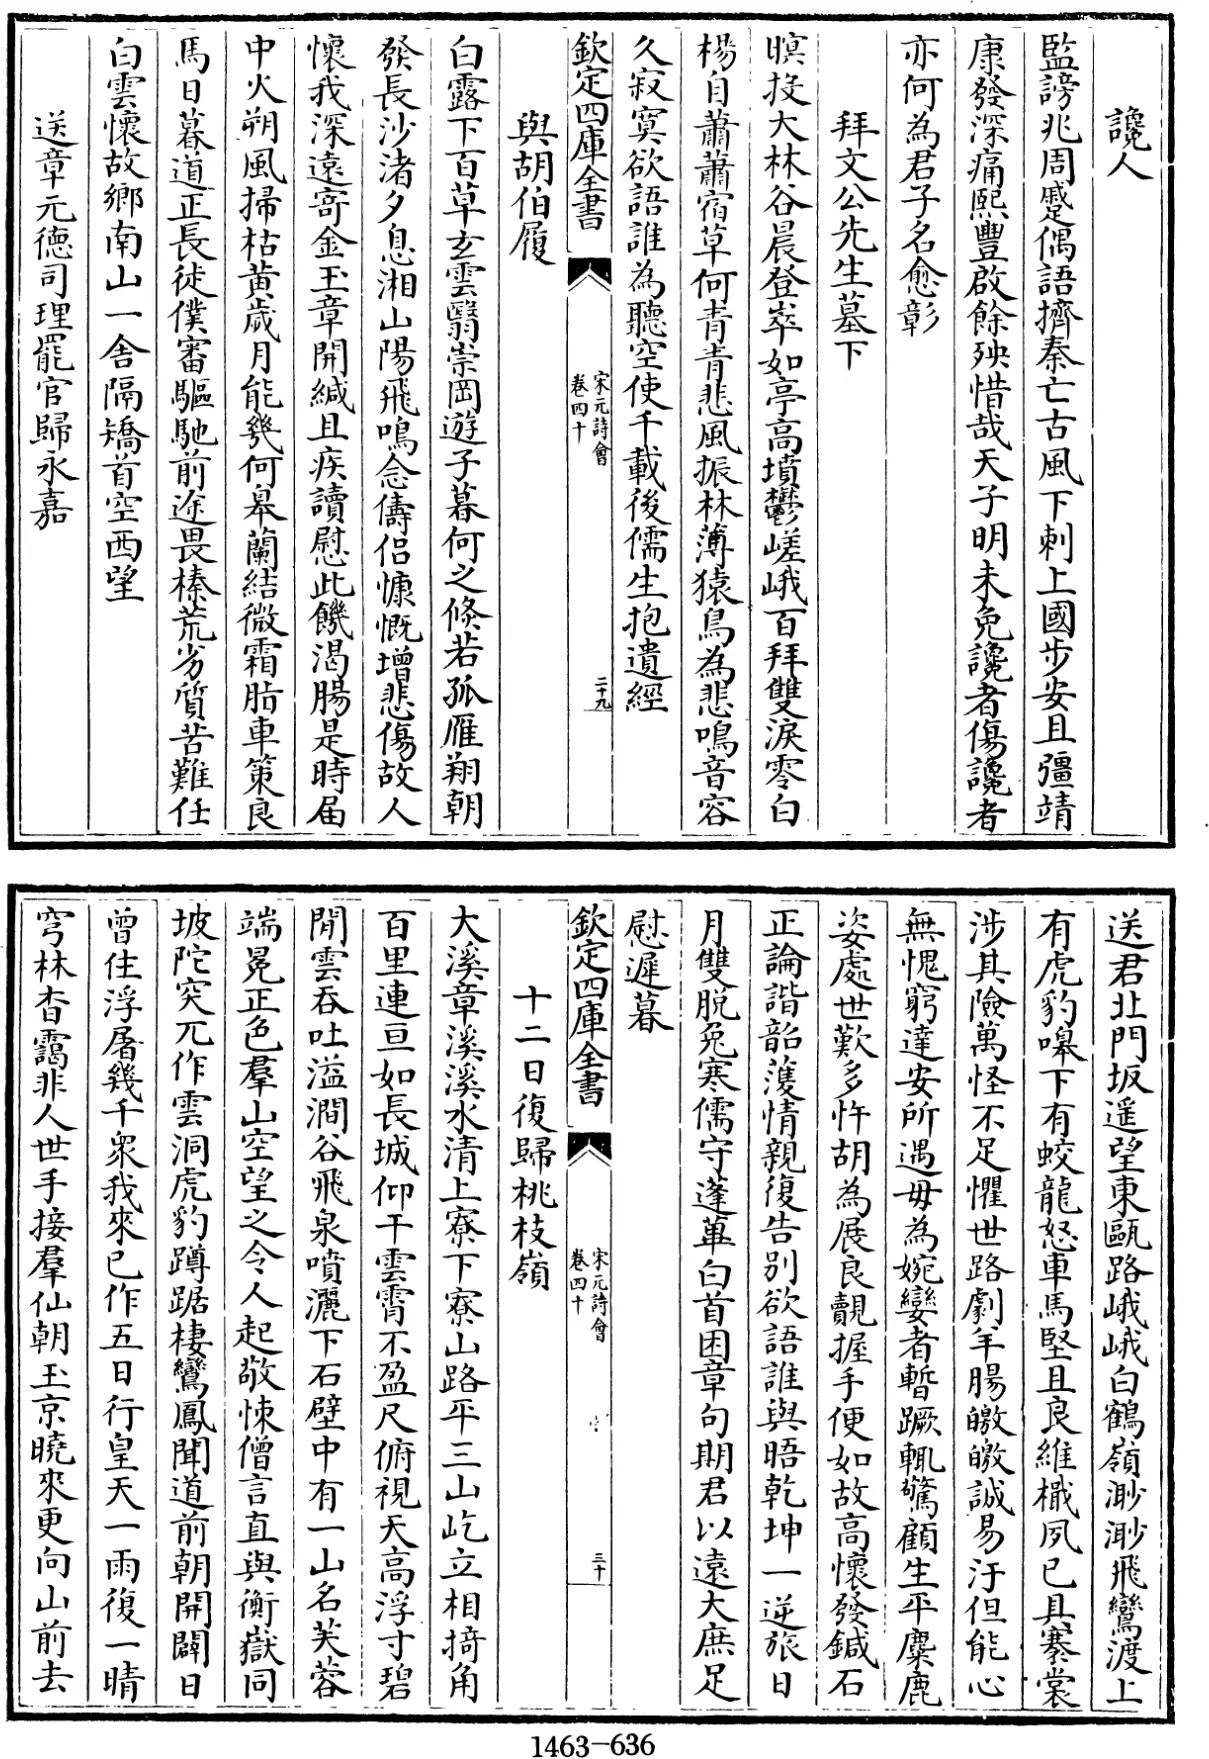 讒人
監謗兆周蹙偶語擠秦亡古風下刺上國步安且彊靖
康發深痛熙豐啟餘殃惜哉天子明未免讒者傷讒者
亦何為君子名愈彰
拜文公先生墓下
暝投大林谷晨登崒如亭高墳鬱嵯峨百拜雙淚零白
楊自蕭蕭宿草何青青悲風振林薄猿鳥為悲鳴音容
久寂寞欲語誰為聽空使千載後儒生抱遺經
欽定四庫全書
宋元詩會
卷四十
二十九
與胡伯履
白露下百草玄雲翳崇岡遊子暮何之倐若孤雁翔朝
發長沙渚夕息湘山陽飛鳴念儔侣慷慨增悲傷故人
懷我深遠寄金玉章開緘且疾讀慰此饑渴腸是時届
中火朔風掃枯黄歲月能幾何皋蘭結微霜脂車策良
馬日暮道正長徒僕審驅馳前途畏榛荒劣質苦難任
白雲懷故鄉南山一舍隔矯首空西望
送章元德司理罷官歸永嘉
送君北門坂遥望東甌路峨峨白鶴嶺渺渺飛鸞渡上
有虎豹嘷下有蛟龍怒車馬堅且良維檝夙已具褰裳
涉其險萬怪不足懼世路劇羊腸皦皦誠易汙但能心
無愧窮達安所遇毋為婉孌者暫蹶輒驚顧生平麋鹿
姿處世歎多忤胡為展良覿握手便如故高懷發鍼石
正論諧韶濩情親復告別欲語誰與晤乾坤一逆旅日
月雙脱兔寒儒守蓬蓽白首困章句期君以遠大庶足
慰遲暮
欽定四庫全書
宋元詩會
卷四十
三十
十二日復歸桃枝嶺
大溪章溪溪水清上寮下寮山路平三山屹立相掎角
百里連亘如長城仰干雲霄不盈尺俯視天高浮寸碧
閒雲吞吐溢澗谷飛泉噴灑下石壁中有一山名芙蓉
端冕正色羣山空望之令人起敬悚僧言直與衡嶽同
坡陀突兀作雲洞虎豹蹲踞棲鸞鳳聞道前朝開闢日
曾住浮屠幾千衆我來已作五日行皇天一雨復一晴
穹林杳靄非人世手接羣仙朝玉京曉來更向山前去
1463-636